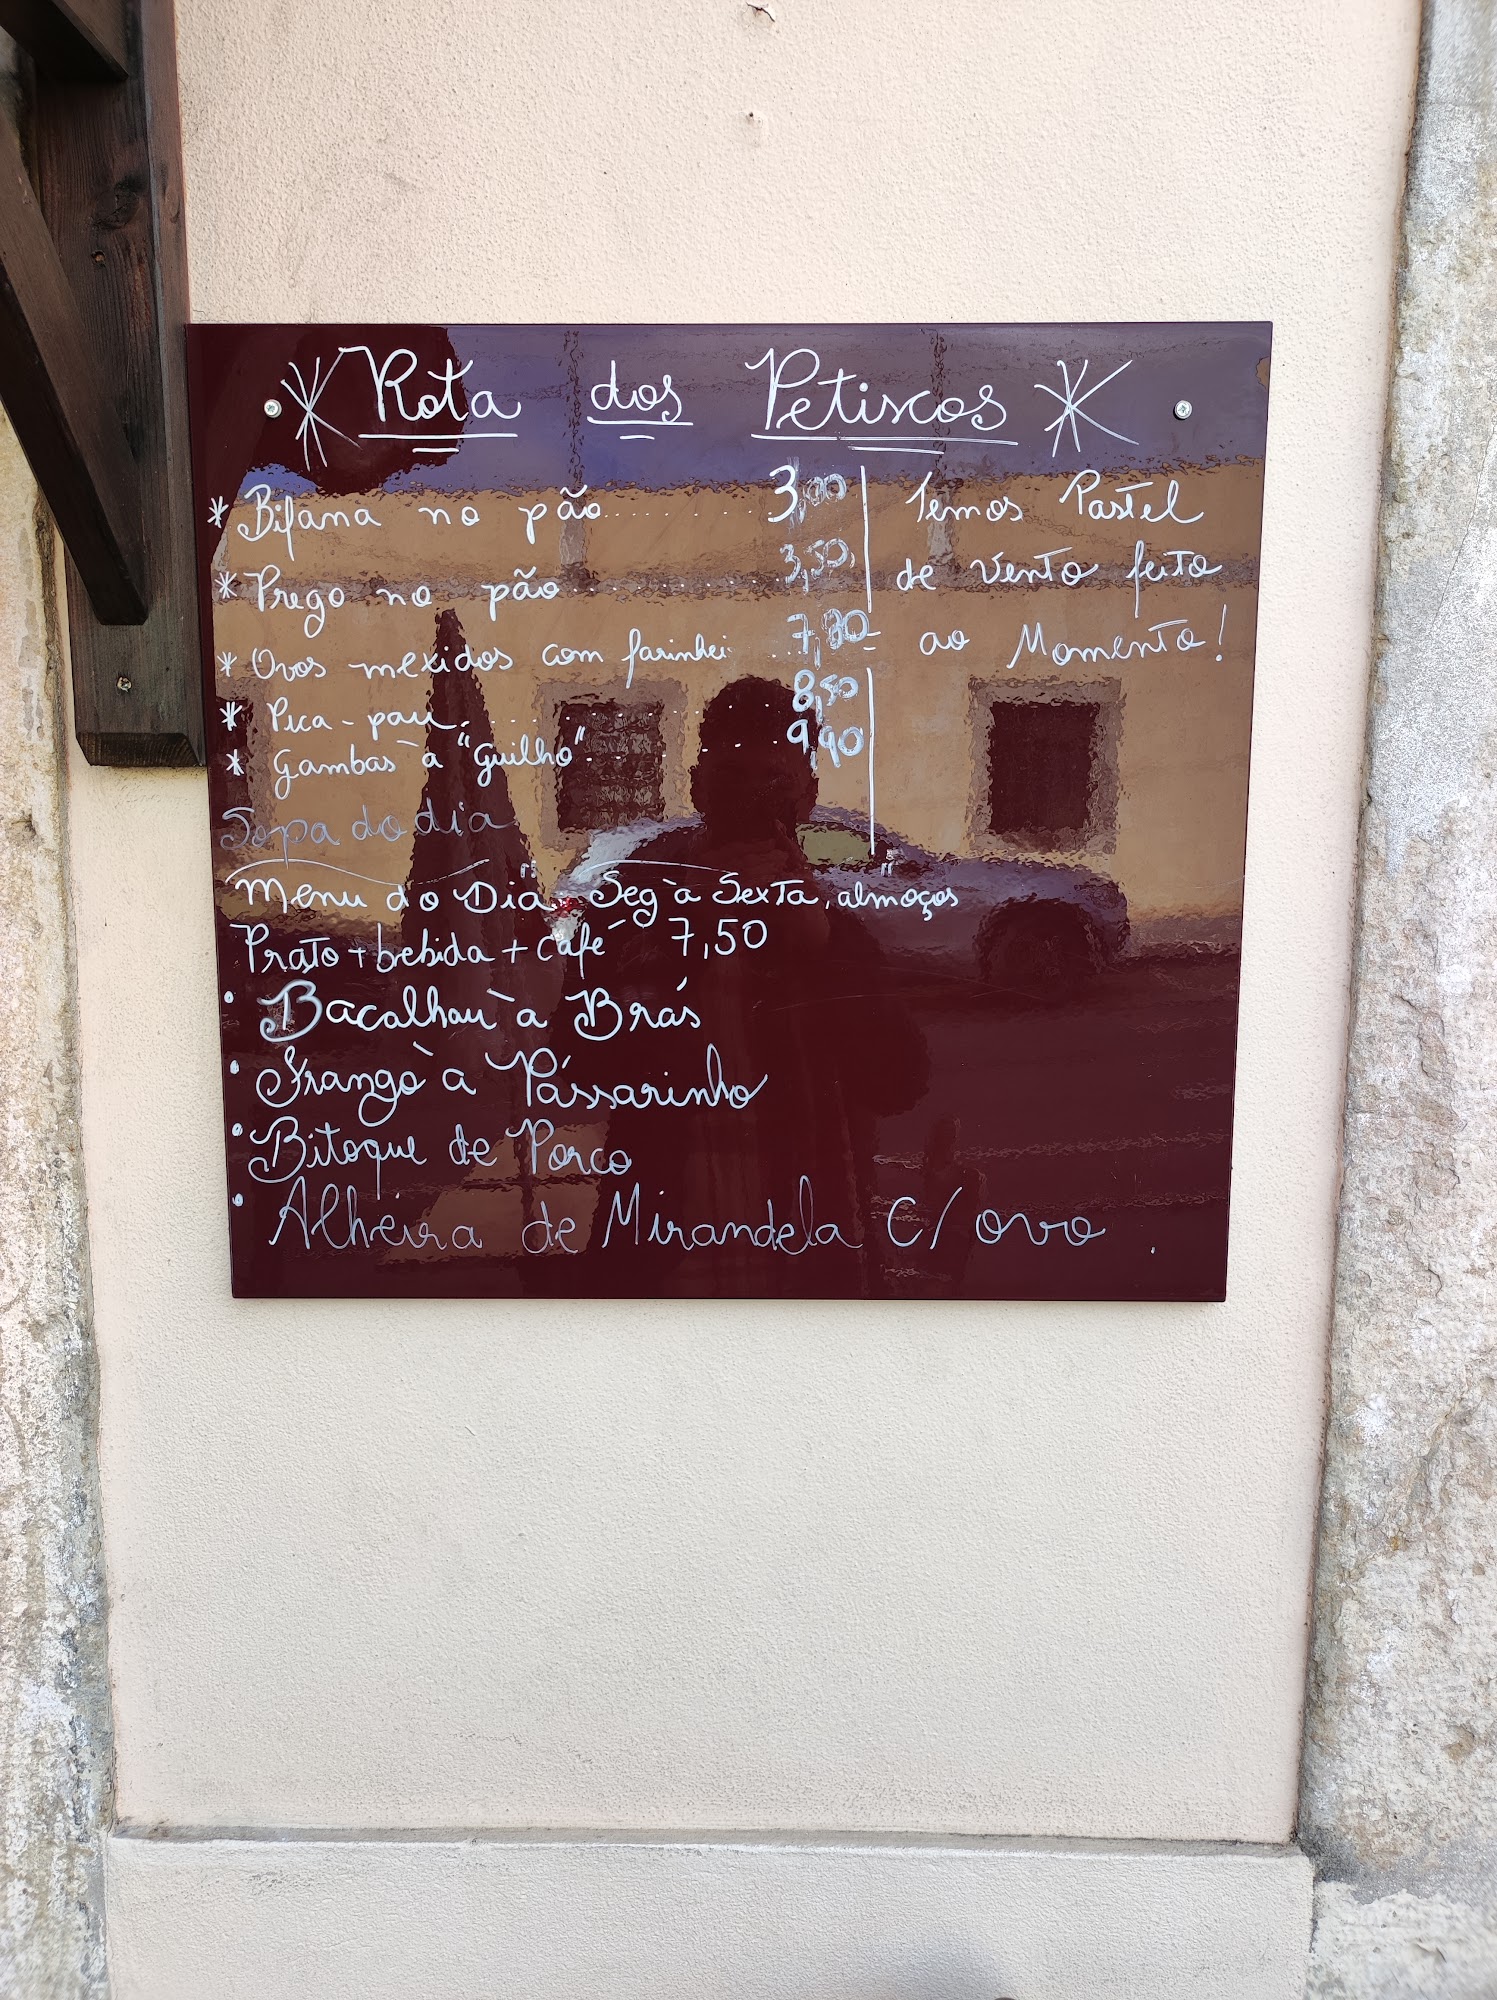 Rota dos Petiscos
* Bifana no pão.......... 3,00
* Prego no pão.......... 3,50
* Ovos mexidos com farinhei ...
* Pica-pau.......... 8,50
* Gambas à "Guilho"....... 9,90
Sopa do dia
"Menu do Dia" Seg à Sexta, "almoços
Prato + bebida + café 7,50
• Bacalhau à Brás
• Frango à Passarinho
• Bitoque de Porco
• Alheira de Mirandela c/ ovo
Temos Pastel
de Vento feito
ao Momento!